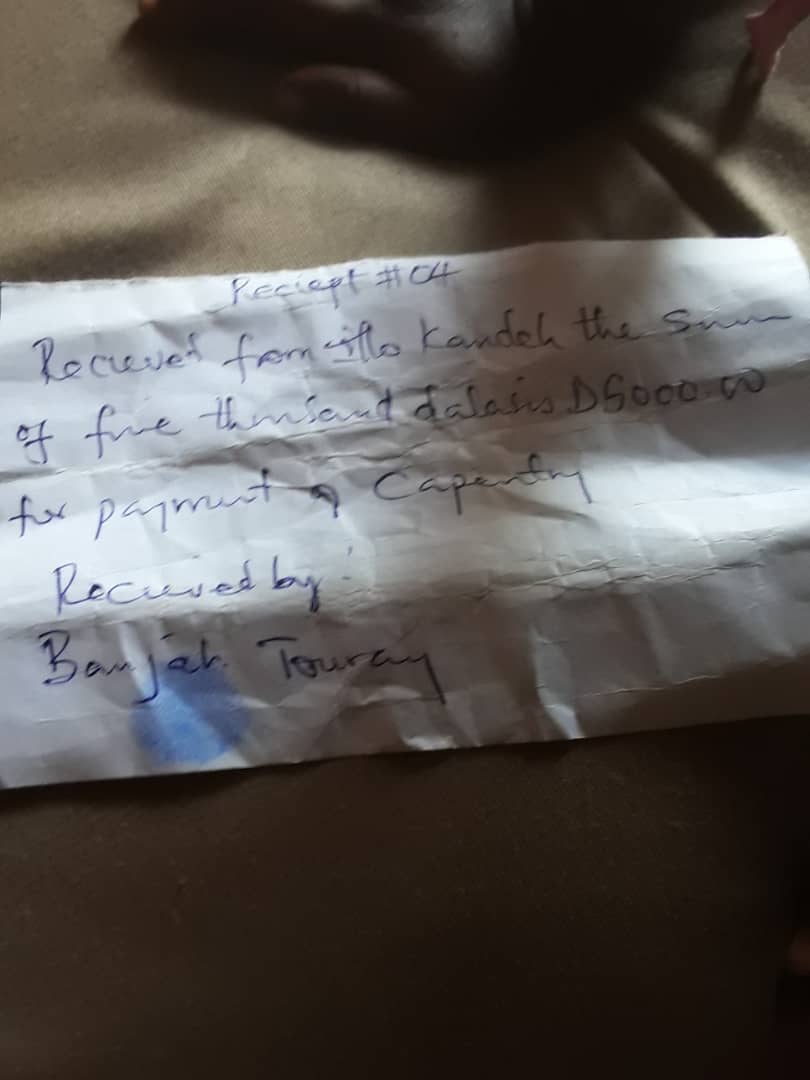 Reciept #04
Recieved from illo Kandeh the Sum
of five thousand dalasis D5000.00
for payment of Capentry
Recieved by:
Banjah Touray